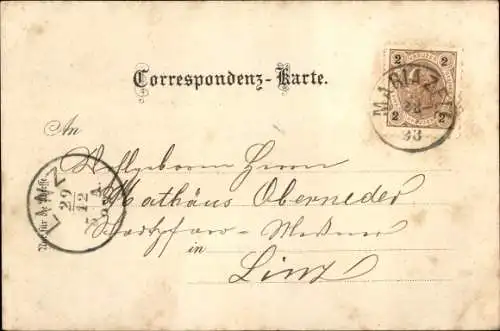 Correspondenz-Karte.
2 2
2 2
MARIAZELL
28
93
An
Wohlgeboren Herrn
Mathäus Oberneder
Stadtpfarr-Meßner
in
Linz
Nur für die Adresse.
LINZ
29
12